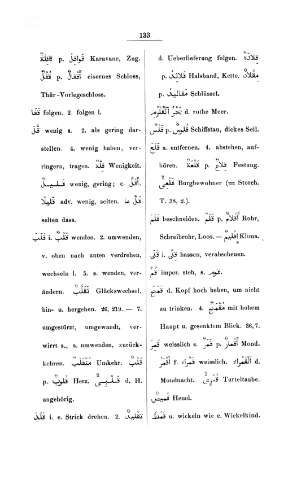 133
قافلة p. قوافل Karavane, Zug.
قفل p. أقفال eisernes Schloss,
Thür-Vorlegeschloss.
قفا folgen. 2. folgen l.
قل wenig s. 2. als gering dar-
stellen. 4. wenig haben, ver-
ringern, tragen. قلة Wenigkeit.
قليل wenig, gering; c. أقل
قليلا adv. wenig, selten.
selten dass.
قلب i. قلب wenden. 2. umwenden,
v. oben nach unten verdrehen,
wechseln l. 5. s. wenden, ver-
ändern. تقلب Glückswechsel.
hin- u. hergehen. 26, 219. — 7.
umgestürzt, umgewandt, ver-
wirrt s., s. umwenden, zurück-
kehren. منقلب Umkehr. قلب
p. قلوب Herz. d. H.
angehörig.
i. e. Strick drehen. 2.
d. Ueberlieferung folgen. قلادة
p. قلائد Halsband, Kette. مقلاد
p. مقاليد Schlüssel.
بحر القلزم d. rothe Meer.
قلس p. قلوس Schiffstau, dickes Seil.
قلع a. entfernen. 4. abstehen, auf-
hören. قلعة p. قلاع Festung.
Burgbewohner (= Storch.
T. 28, 2.).
قلم beschneiden. قلم p. أقلام Rohr,
Schreibrohr, Loos. — إقليم Klima.
قلى i. قلى hassen, verabscheuen.
قم impor. steh, s. قوم.
قمح d. Kopf hoch heben, um nicht
zu trinken. 4. مقمح mit hohem
Haupt u. gesenktem Blick. 36, 7.
قمر weisslich s. قمر p. أقمار Mond.
أقمر f. قمراء weisslich. القمراء d.
Mondnacht. قمري Turteltaube.
قميص Hemd.
قمط u. wickeln wie e. Wickelkind.